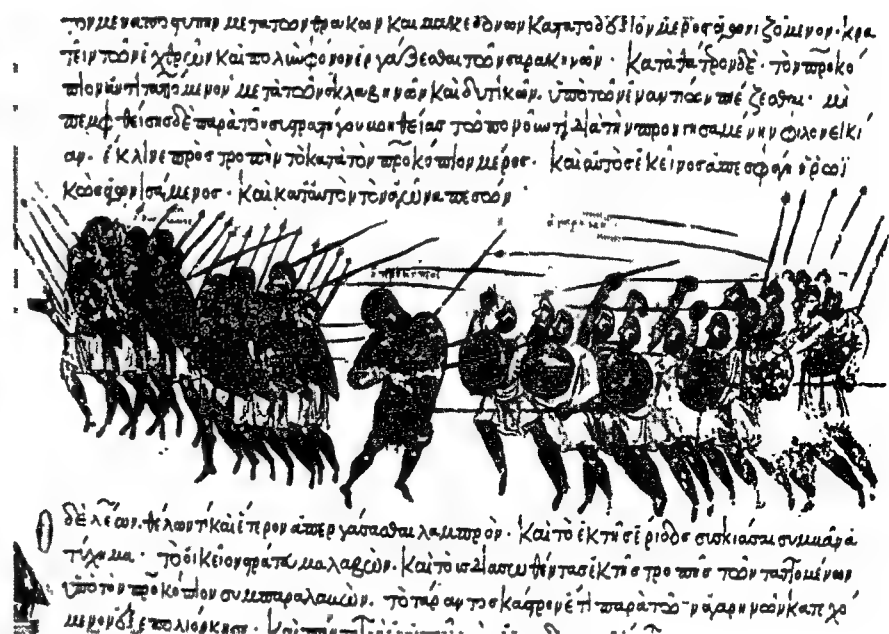 μετὰ τῶν θρακῶν καὶ μακεδόνων κατὰ τὸ δεξιὸν μέρος ἀγωνιζόμενον· κρα
τεῖν τῶν ἐχθρῶν καὶ πολὺν φόνον ἐργάζεσθαι τῶν σαρακηνῶν· κατὰ θάτερον δὲ· τὸν προκό
πιον ἀντιταττόμενον μετὰ τῶν σκλαβηνῶν καὶ δυτικῶν· ὑπὸ τῶν ἐναντίων πιέζεσθαι· μὴ
πεμφθείσης δὲ παρὰ τοῦ συστρατήγου βοηθείας τῷ πονοῦντι διὰ τὴν προηγησαμένην φιλονεικί
αν· ἔκλινε πρὸς τροπὴν τὸ κατὰ τὸν προκόπιον μέρος· καὶ αὐτὸς ἐκεῖνος ἀπεσφάγη ἡρωϊ
κῶς ἀγωνισάμενος· καὶ κατ' αὐτὸν τὸν ἀγῶνα πεσών
προκόπιος
Ὁ δὲ λέων· θέλων τι καὶ ἕτερον ἀπεργάσασθαι λαμπρὸν· καὶ τὸ ἐκ τῆς ἔριδος συσκιάσαι συμβὰν ἀ
τύχημα· τὸ οἰκεῖον στράτευμα λαβὼν· καὶ τοὺς διασωθέντας ἐκ τῆς τροπῆς τῶν ταττομένων
ὑπὸ τὸν προκόπιον συμπαραλαβὼν· τὸ κάστρον ἔτι παρὰ τῶν ἀγαρηνῶν κατεχό
μενον ἐξεπολιόρκησε· καὶ